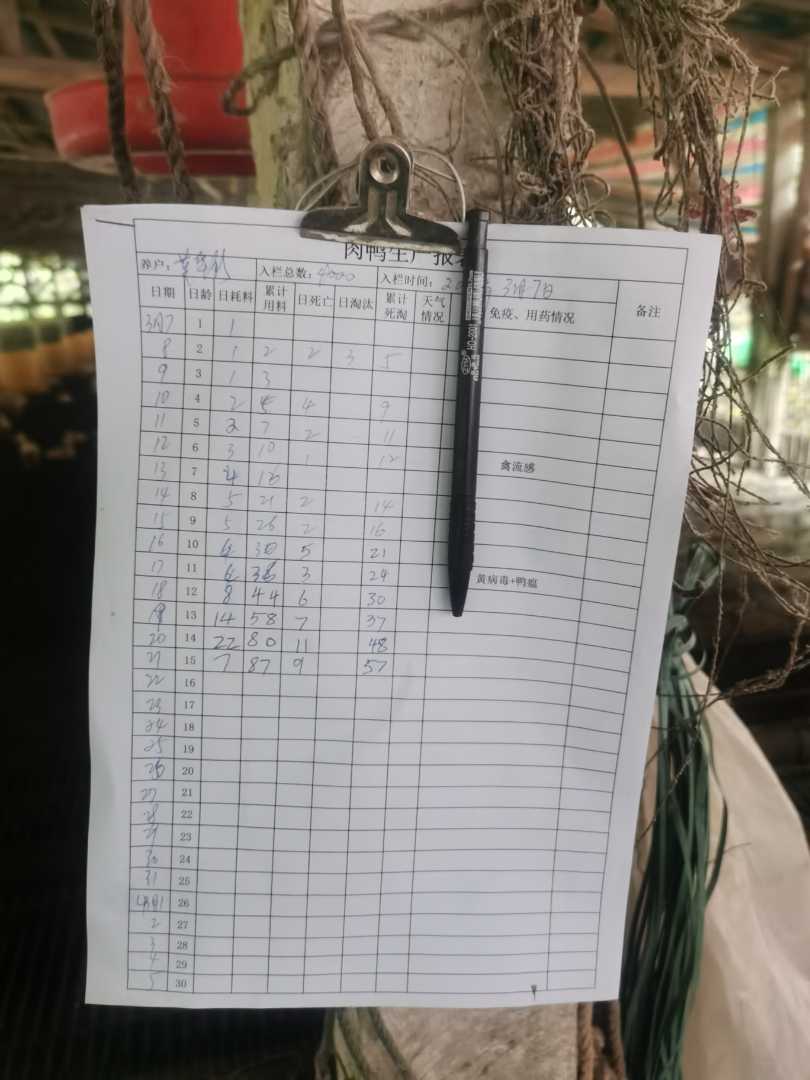 肉鸭生产报
养户： 入栏总数：4000 入栏时间：2 3月7日
日期 日龄 日耗料 累计用料 日死亡 日淘汰 累计死淘 天气情况 免疫、用药情况 备注
3月7 1 1
8 2 1 2 2 3 5
9 3 1 3
10 4 2 4 9
11 5 7 2 11
12 6 3 10 1 12
13 7 4 禽流感
14 8 5 21 2 14
15 9 5 26 2 16
16 10 30 5 21
17 11 3 24 黄病毒+鸭瘟
18 12 8 44 6 30
19 13 14 58 7 37
20 14 22 80 11 48
21 15 7 87 9 57
22 16
23 17
24 18
25 19
26 20
27 21
28 22
29 23
30 24
31 25
4月1 26
2 27
3 28
4 29
5 30